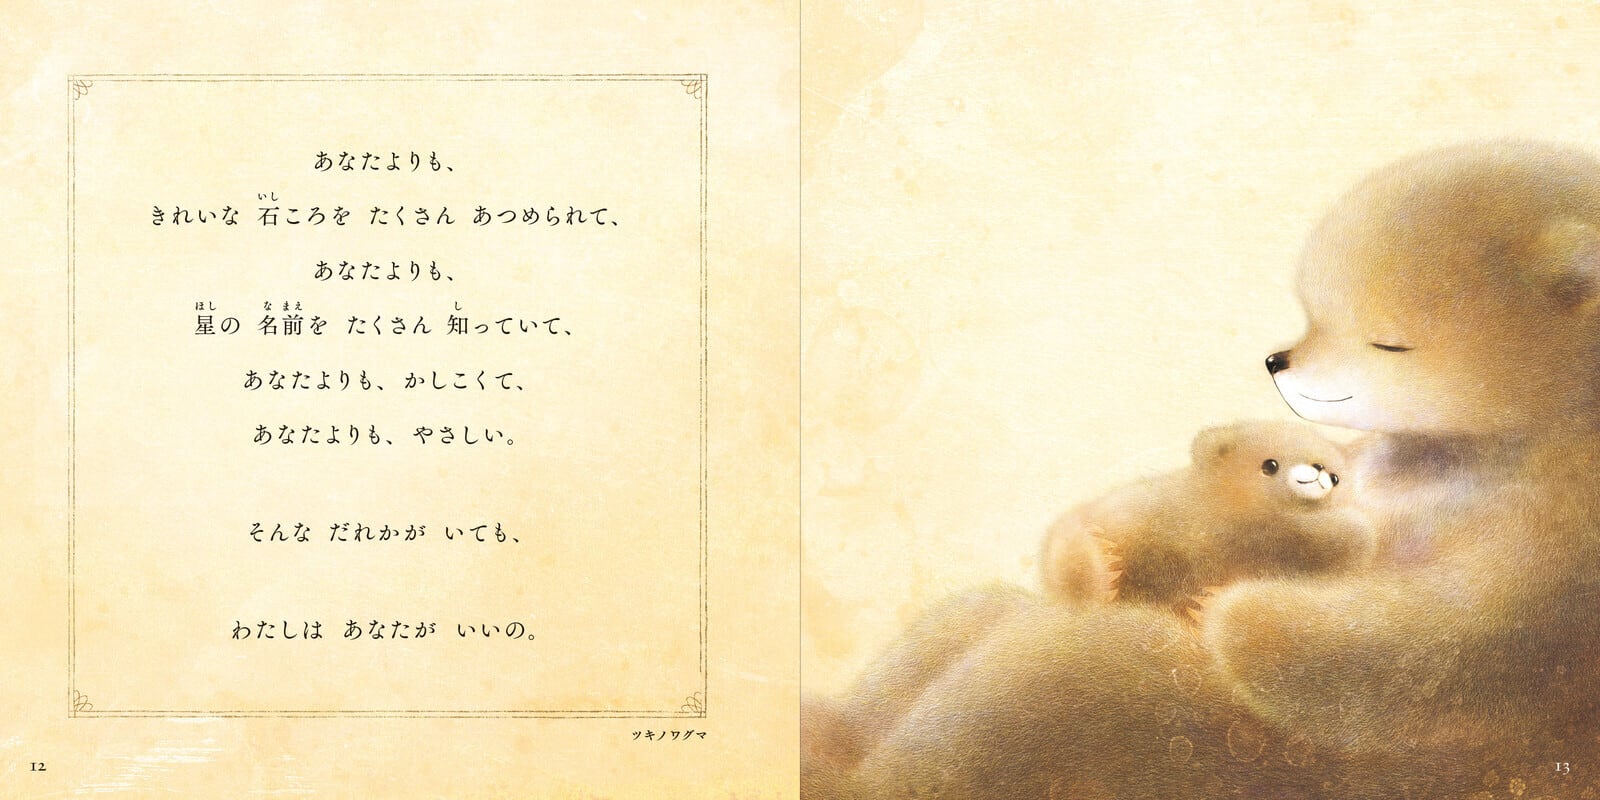 あなたよりも、
きれいな 石ころを たくさん あつめられて、
あなたよりも、
星の 名前を たくさん 知っていて、
あなたよりも、かしこくて、
あなたよりも、やさしい。
そんな だれかが いても、
わたしは あなたが いいの。
ツキノワグマ
12
13